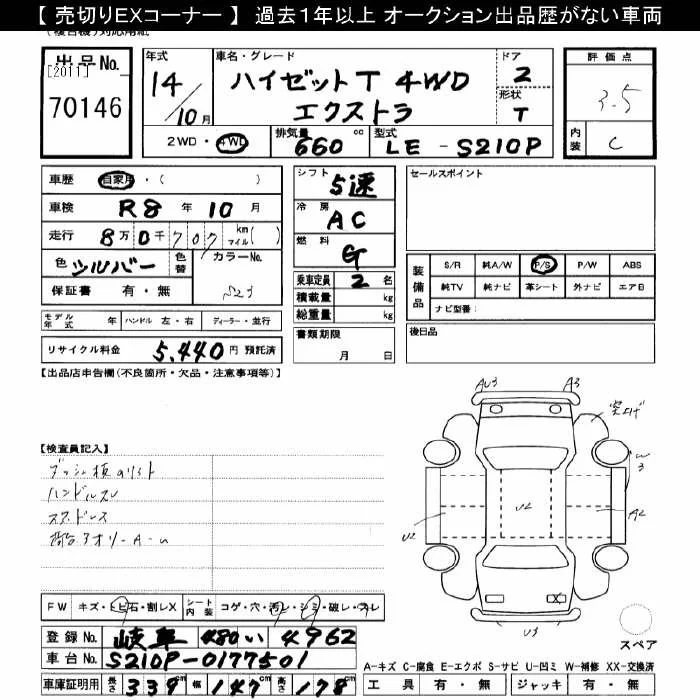 【 売切りEXコーナー 】 過去1年以上 オークション出品歴がない車両
出品No.
[2011]
70146
年式
14/10月
車名・グレード
ハイゼットT 4WD
エクストラ
ドア
2
形状
T
評価点
3.5
内装
C
2WD・4WD
排気量
660 cc
型式
LE-S210P
車歴 自家用・( )
車検 R8 年 10 月
走行 8万0千707 km マイル( )
色 シルバー 色替 カラーNo.
保証書 有・無
モデル年式 年 ハンドル 左・右 ディーラー・並行
リサイクル料金 5,440 円 預託済
シフト 5速
冷房 AC
燃料 G
乗車定員 2 名
積載量 kg
総重量 kg
書類期限
月 日
セールスポイント
装備品
S/R 純A/W P/S P/W ABS
純TV 純ナビ 革シート 外ナビ エアB
ナビ型番:
後日品
【出品店申告欄(不良箇所・欠品・注意事項等)】
【検査員記入】
ハンドルスレ
AU3 A3
W3
U2
U2
A2
U3
スペア
FW キズ・トビ石・割レX シート内装 コゲ・穴・汚レ・シミ・破レ・スレ
登録No. 岐阜 480 い 4962
車台No. S210P-0177501
車庫証明用 長さ 339 cm 幅 147 cm 高さ 178 cm
A-キズ C-腐食 E-エクボ S-サビ U-凹ミ W-補修 XX-交換済
工具 有・無 ジャッキ 有・無